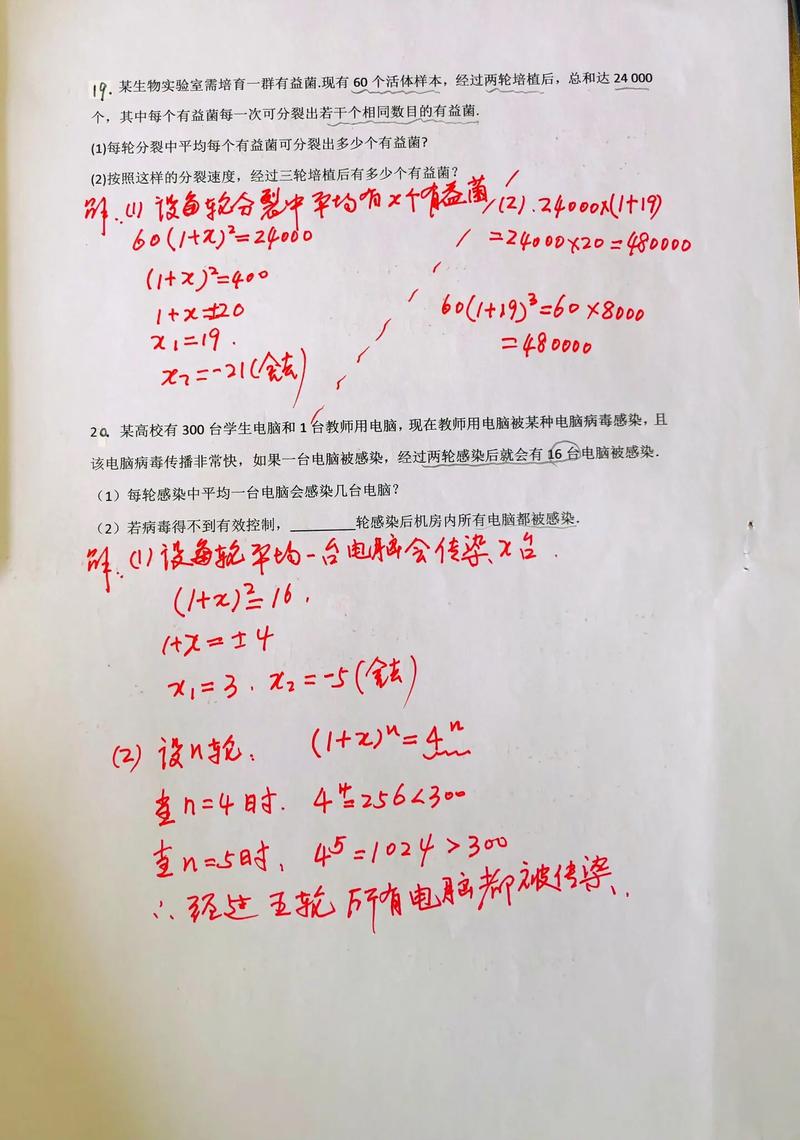 19. 某生物实验室需培育一群有益菌.现有 60 个活体样本，经过两轮培植后，总和达 24 000
个，其中每个有益菌每一次可分裂出若干个相同数目的有益菌.
(1)每轮分裂中平均每个有益菌可分裂出多少个有益菌?
(2)按照这样的分裂速度，经过三轮培植后有多少个有益菌?
解.(1) 设每轮分裂中平均有x个有益菌
60(1+x)²=24000
(1+x)²=400
1+x=±20
x₁=19.
x₂=-21(舍去)
(2).24000×(1+19)
=24000×20=480000
60(1+19)³=60×8000
=480000
20. 某高校有 300 台学生电脑和 1 台教师用电脑，现在教师用电脑被某种电脑病毒感染，且
该电脑病毒传播非常快，如果一台电脑被感染，经过两轮感染后就会有 16 台电脑被感染.
（1）每轮感染中平均一台电脑会感染几台电脑?
（2）若病毒得不到有效控制，________轮感染后机房内所有电脑都被感染.
解.(1)设每轮平均一台电脑会传染x台.
(1+x)²=16.
1+x=±4
x₁=3. x₂=-5(舍去)
(2) 设n轮. (1+x)ⁿ=4ⁿ
当n=4时. 4⁴=256<300
当n=5时. 4⁵=1024>300
∴经过五轮所有电脑都被传染.